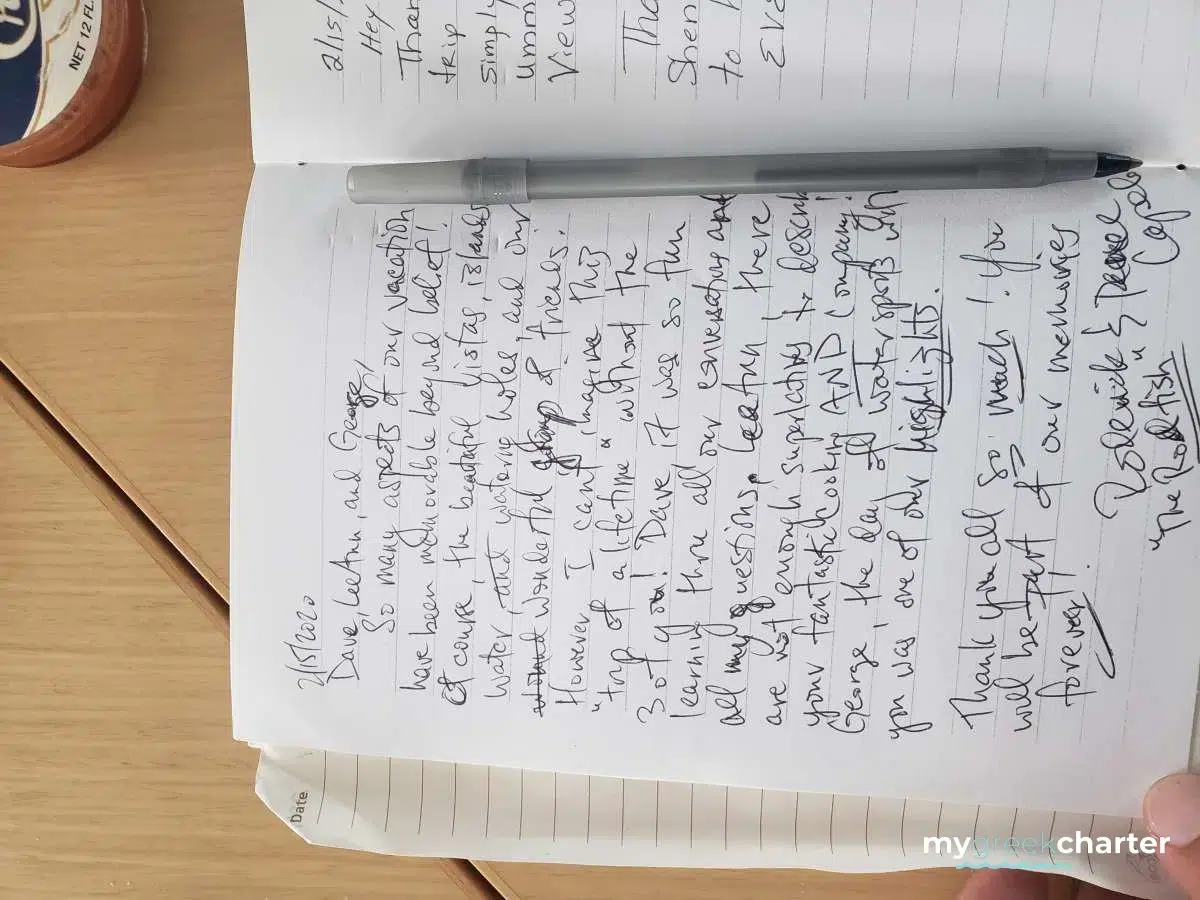 2/15/2020
Dave, LeeAnn, and George,
So many aspects of our vacation
have been memorable beyond belief!
Of course, the beatiful vistas, islands
water, and watering holes, and our
wonderful group of friends.
However, I can't imagine this
"trip of a lifetime" without the
3 of you! Dave it was so fun
learning thru all our conversations and
all my questions. LeeAnn there
are not enough superlatives to describe
your fantastic cooking AND company!
George the day of watersports with
you was one of our highlights.
Thank you all so much! You
will be part of our memories
forever!
Roderick &
"The Rodfish"
2/15/
Hey
Than
trip
simply
umm
View
Tha
Shen
to
Eve
NET 12 FL.
Date
mygreekcharter